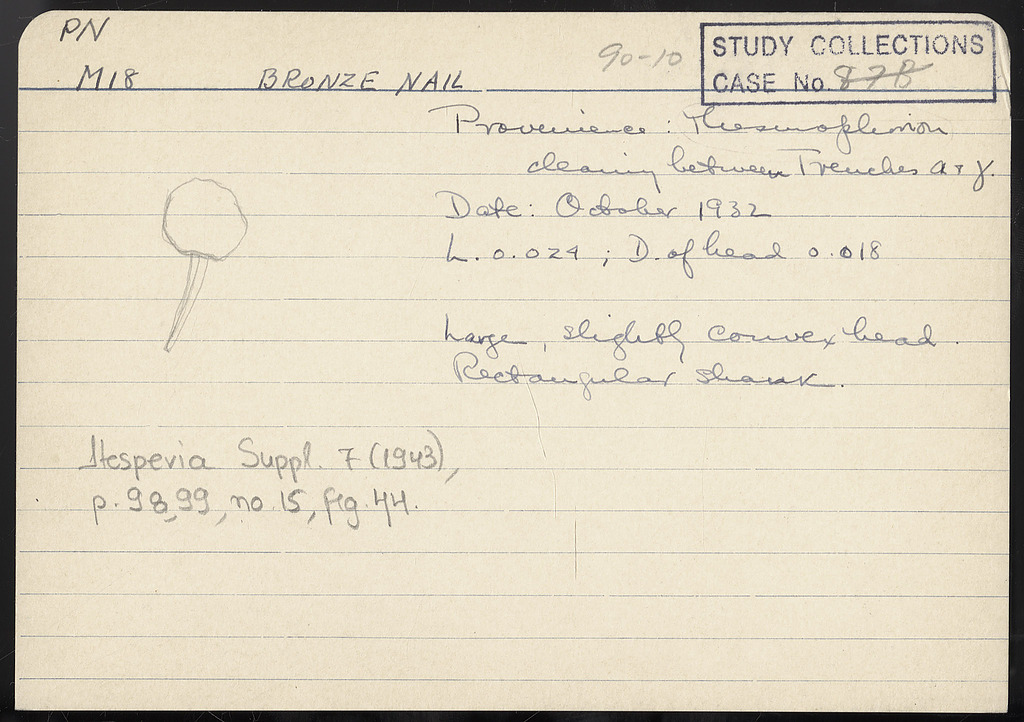 PN
M18 BRONZE NAIL 90-10
STUDY COLLECTIONS
CASE No. 87B
Provenience: Thesmophorion
cleaning between Trenches α + γ.
Date: October 1932
L. 0.024 ; D. of head 0.018
Large, slightly convex head.
Rectangular shank.
Hesperia Suppl. 7 (1943),
p. 98,99, no. 15, fig. 44.